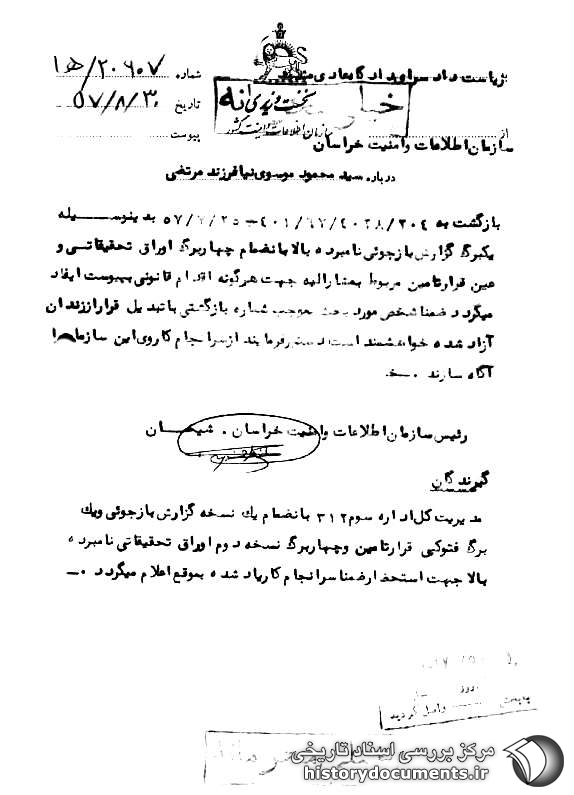 شماره ۲۰۶۰۷/ﻫ۱
بریاست دادسرای دادگاه عادی مشهد
تاریخ ۵۷/۸/۳۰
نخست وزیری
سازمان اطلاعات و امنیت کشور
پیوست
از
سازمان اطلاعات و امنیت خراسان
درباره سید محمود موسوی نیا فرزند مرتضی
بازگشت به ۴۰۱/۶۷/۲۰۲۸/۲۰۴–۵۷/۷/۲۵ بدینوسیله
یکبرگ گزارش بازجوئی نامبرده بالا بانضمام چهاربرگ اوراق تحقیقاتی و
عین قرار تامین مربوط بمشارالیه جهت هرگونه اقدام قانونی به پیوست ایفاد
میگردد ضمنا شخص مورد بحث بموجب شماره بازگشتی با تبدیل قرار از زندان
آزاد شده خواهشمند است دستور فرمایند از سرانجام کار وی این سازمان را
آگاه سازند ۰–خ
رئیس سازمان اطلاعات و امنیت خراسان ۰ شیخان
گیرندگان
مدیریت کل اداره سوم ۳۱۲ بانضمام یك نسخه گزارش بازجوئی ویك
برگ فتوکپی قرار تامین وچهاربرگ نسخه دوم اوراق تحقیقاتی نامبرده
بالا جهت استحضار ضمنا سرانجام کار یاد شده بموقع اعلام میگردد ۰–
روز
به بخش واصل گردید
مرکز بررسی اسناد تاریخی
historydocuments.ir